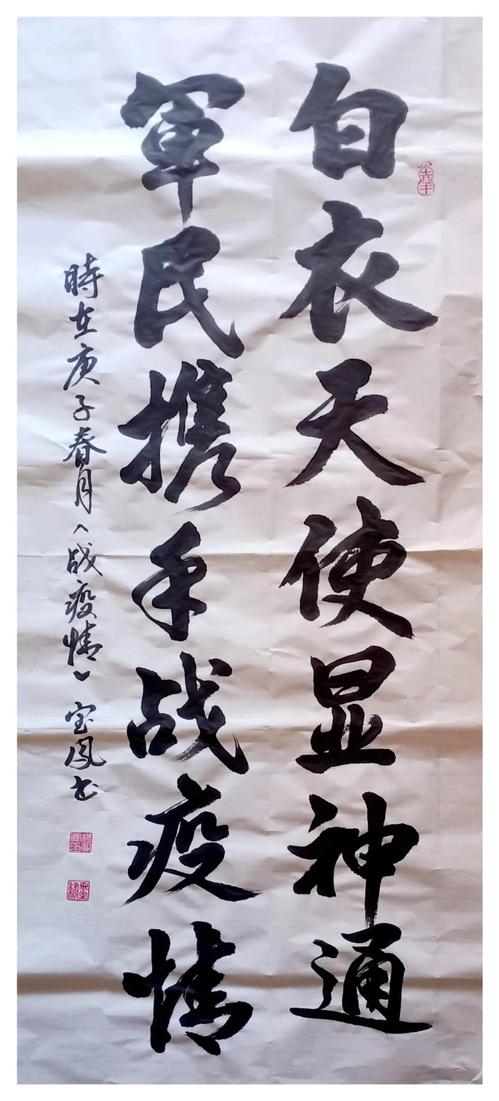 白衣天使显神通
軍民携手战疫情
時在庚子春月《战疫情》宝凤书